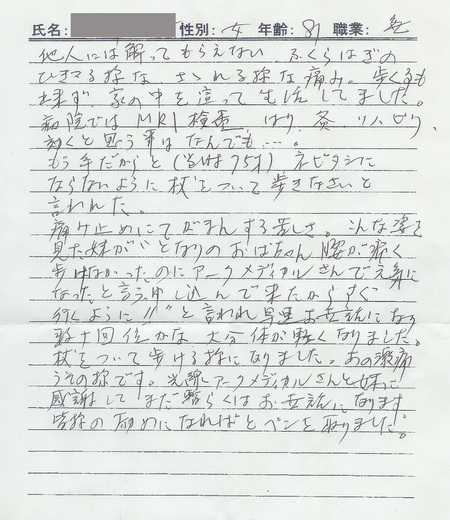 氏名: 性別: 女 年齢: 81 職業: 無
他人には解ってもらえない、ふくらはぎの
ひきつる様な、さゝれる様な痛み。歩くことも
出来ず、家の中を這って生活してました。
病院ではMRI検査、はり、灸、リハビリ、
効くと思う事はなんでも…。
もう年だからと(当時75才)ネタキリに
ならないように杖をついて歩きなさいと
言われた。
痛み止めにてがまんする苦しさ。こんな姿を
見た妹が"となりのおばちゃん腰が痛く
歩けなかったのにアークメディカルさんで元気に
なったと言う。申し込んで来たからすぐ
行くように!!"と言われ早速お世話になり
数十回位かな 大分体が軽くなりました。
杖をついて歩ける様になりました。あの激痛
うその様です。光線とアークメディカルさんと妹に
感謝して まだ暫らくはお世話になります
皆様の励めになればとペンを取りました。